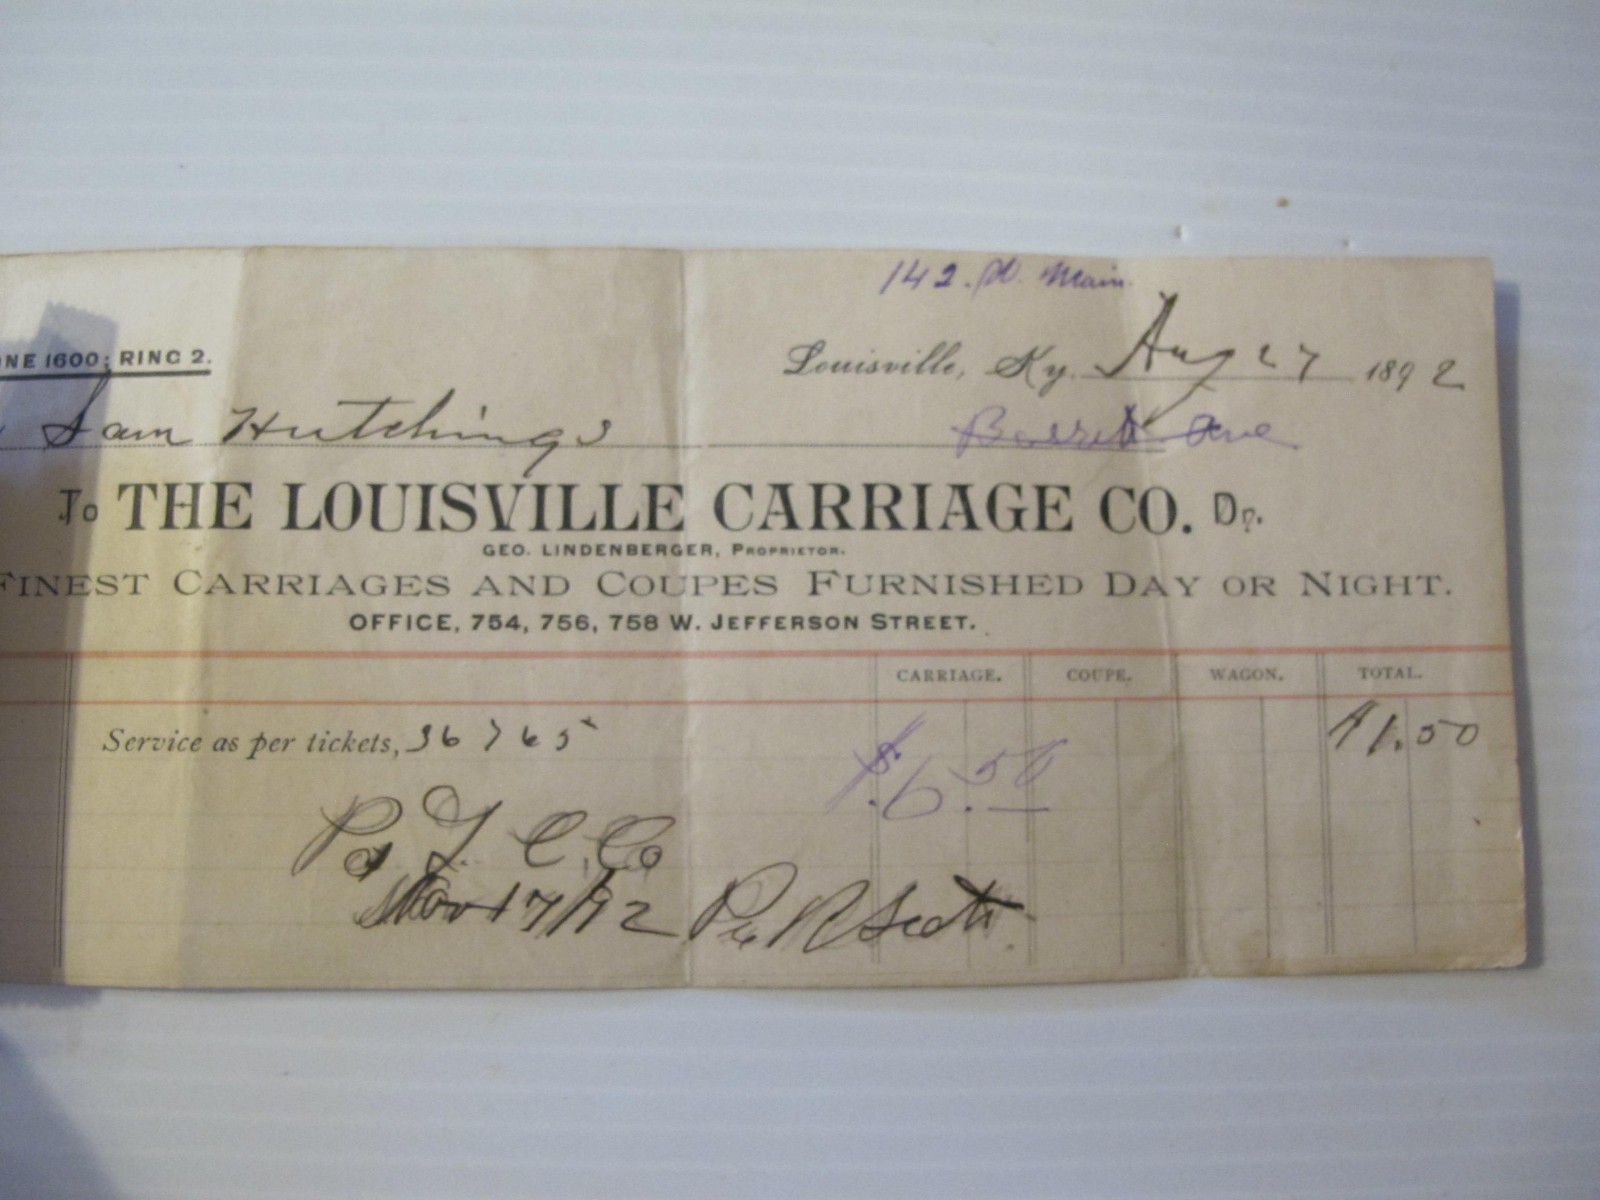 142. W. Main.
ONE 1600; RING 2.
Louisville, Ky. Aug 27 1892
Sam Hutchings
Barrett Ave
To THE LOUISVILLE CARRIAGE CO. Dr.
GEO. LINDENBERGER, PROPRIETOR.
FINEST CARRIAGES AND COUPES FURNISHED DAY OR NIGHT.
OFFICE, 754, 756, 758 W. JEFFERSON STREET.
CARRIAGE. COUPE. WAGON. TOTAL.
Service as per tickets, 36765 $1.50
$6.50
Pd. L. C. Co
Nov 17/92 Per R Scott